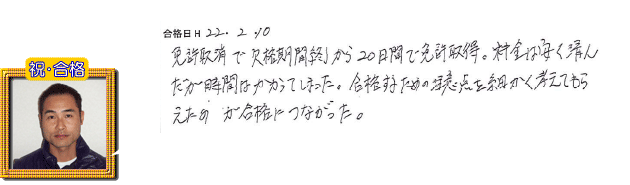 合格日 H 22.2.10
免許取消で欠格期間終了から20日間で免許取得。料金は安く済ん
だが時間はかかってしまった。合格するための注意点を細かく考えてもら
えため が合格につながった。
祝・合格